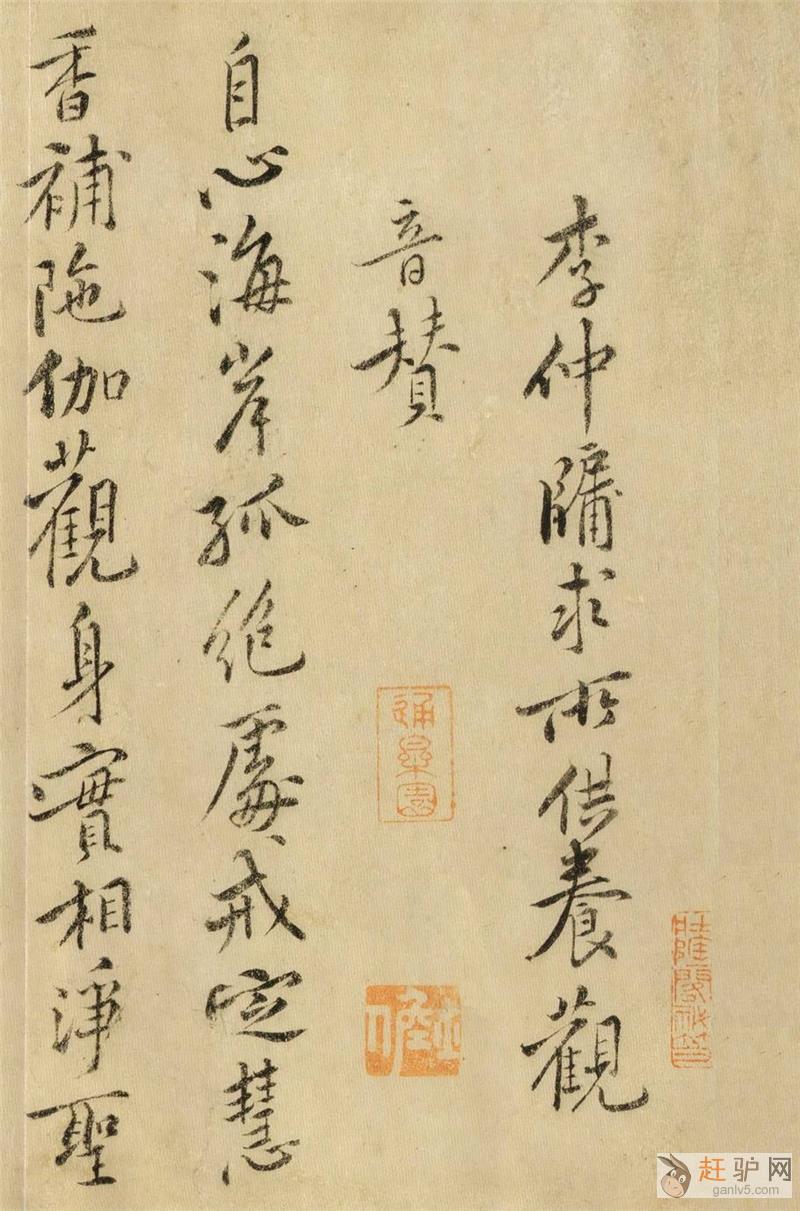 李仲牖求所供養觀
音贊
自心海岸孤絕處戒定慧
香補陁伽觀身實相淨聖
赶驴网
ganlv5.com